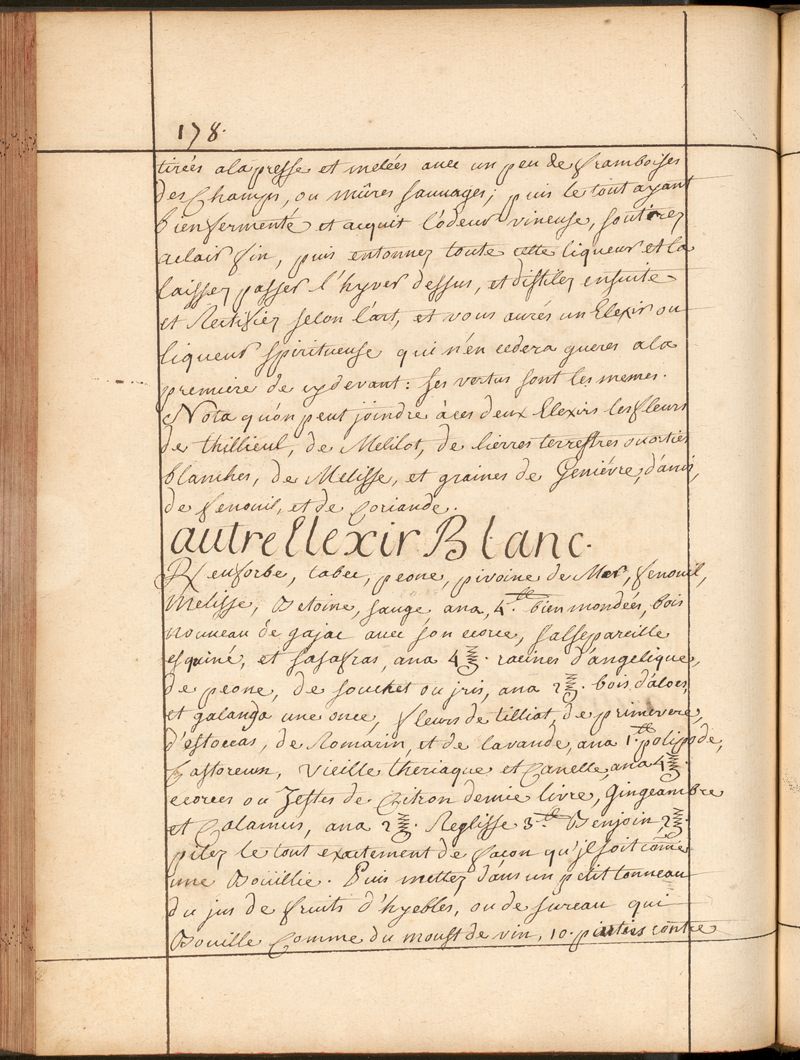 178.
tirées ala presse et melées avec un peu de framboises
des Champs, ou mûres sauvages; puis le tout ayant
bien fermenté et acquit l'odeur vineuse, soutirez
aclair fin, puis entonnez toute cette liqueur et la
laissez passer l'hyver dessus, et distilez ensuite
et Rectifiez selon l'art, et vous aurés un Elexir ou
liqueur spiritueuse qui n'en cedera gueres ala
premiere de cydevant: ses vertus sont les memes.
Nota qu'on peut joindre àces deux Elexirs les fleurs
de thillieul, de Melilot, de lierres terrestres ou orties
blanches, de Melisse, et graines de Geniévre, d'anis,
de fenouil, et de Coriande.
autre Elexir Blanc.
℞ enforbe, tabec, peone, pivoine de Mer, fenouil,
Melisse, Betoine, sauge ana, 4.lt bien mondées, bois
nouveau de gajac avec son ecorce, salsepareille
esquiné, et sasafras, ana 4 ℥. racines d'angelique,
de peone, de souchet ou jris, ana 2 ℥. bois d'aloes
et galanga une once, fleurs de tilliot, de primevere,
d'estoecas, de Romarin, et de lavande, ana 1.lt polipode,
Castoreum, vieille theriaque et Canelle, ana 4 ℥.
ecorces ou Zestes de Citron demie livre, Gingeambre
et Calamus, ana 2 ℥. Reglisse 3.lt Benjoin, 2 ℥.
pilez le tout exactement de facon qu'jl soit come
une Boüillie. Puis mettez dans un petit tonneau
du jus de fruits d'hyebles, ou de sureau qui
Boüille Comme du moust de vin, 10. parties contre